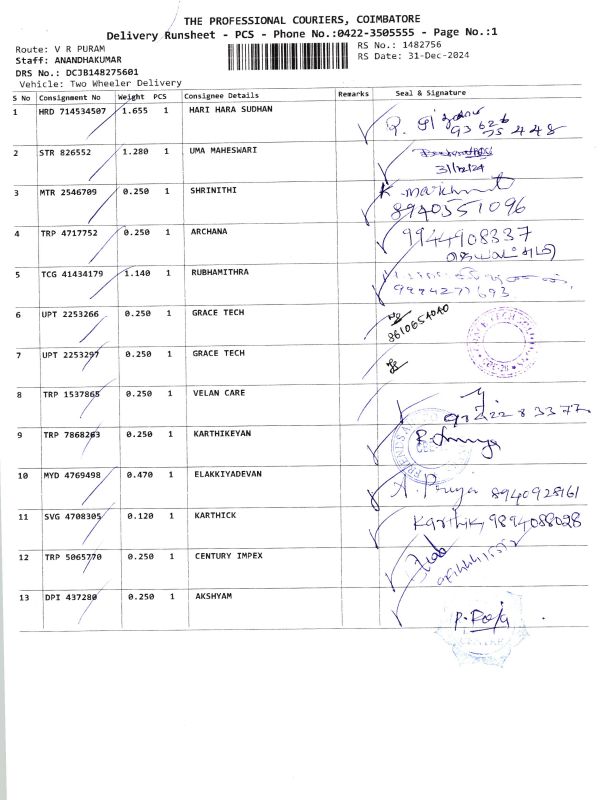 THE PROFESSIONAL COURIERS, COIMBATORE
Delivery Runsheet - PCS - Phone No.:0422-3505555 - Page No.:1
Route: V R PURAM
RS No.: 1482756
Staff: ANANDHAKUMAR
RS Date: 31-Dec-2024
DRS No.: DCJB148275601
Vehicle: Two Wheeler Delivery
S No Consignment No Weight PCS Consignee Details Remarks Seal & Signature
1 HRD 714534507 1.655 1 HARI HARA SUDHAN
2 STR 826552 1.280 1 UMA MAHESWARI
31/12/24
3 MTR 2546709 0.250 1 SHRINITHI
8940551096
4 TRP 4717752 0.250 1 ARCHANA 9944908337
5 TCG 41434179 1.140 1 RUBHAMITHRA
6 UPT 2253266 0.250 1 GRACE TECH
8610654040
7 UPT 2253297 0.250 1 GRACE TECH
8 TRP 1537865 0.250 1 VELAN CARE
9 TRP 7868263 0.250 1 KARTHIKEYAN
10 MYD 4769498 0.470 1 ELAKKIYADEVAN
A. Priya
11 SVG 4708305 0.120 1 KARTHICK Karthik 9894088028
12 TRP 5065770 0.250 1 CENTURY IMPEX
13 DPI 437280 0.250 1 AKSHYAM